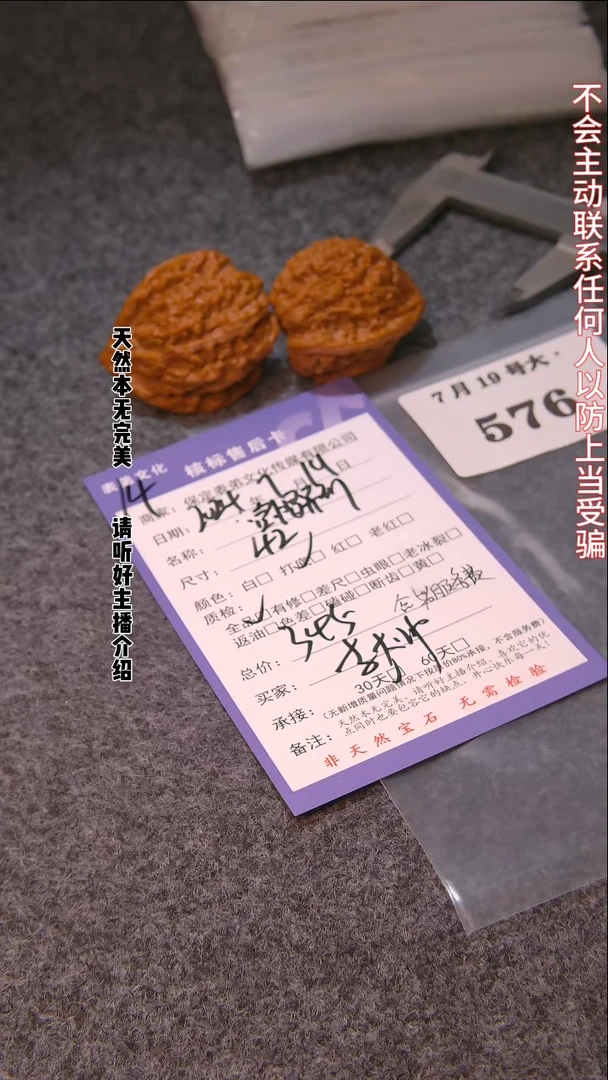 不会主动联系任何人以防上当受骗
天然本无完美 请听好主播介绍
7月19号大·
576
表弟文化 核标售后卡
14
商家：保定表弟文化传媒有限公司
日期：2024年7月19日
名称：
尺寸：42
颜色：白□ 打□ 红□ 老红□
质检：
全品□有修□差尺□虫眼□老冰裂□
返油□色差□磕碰□断齿□黄□
总价：345 含服务费
买家：李大帅
承接：30天□ 60天□
（无新增质量问题情况下按原价80%承接，不含服务费）
备注：天然本无完美，请听好主播介绍，喜欢它的优
点同时也要包容它的缺点，开心快乐每一天！
非天然宝石 无需检验